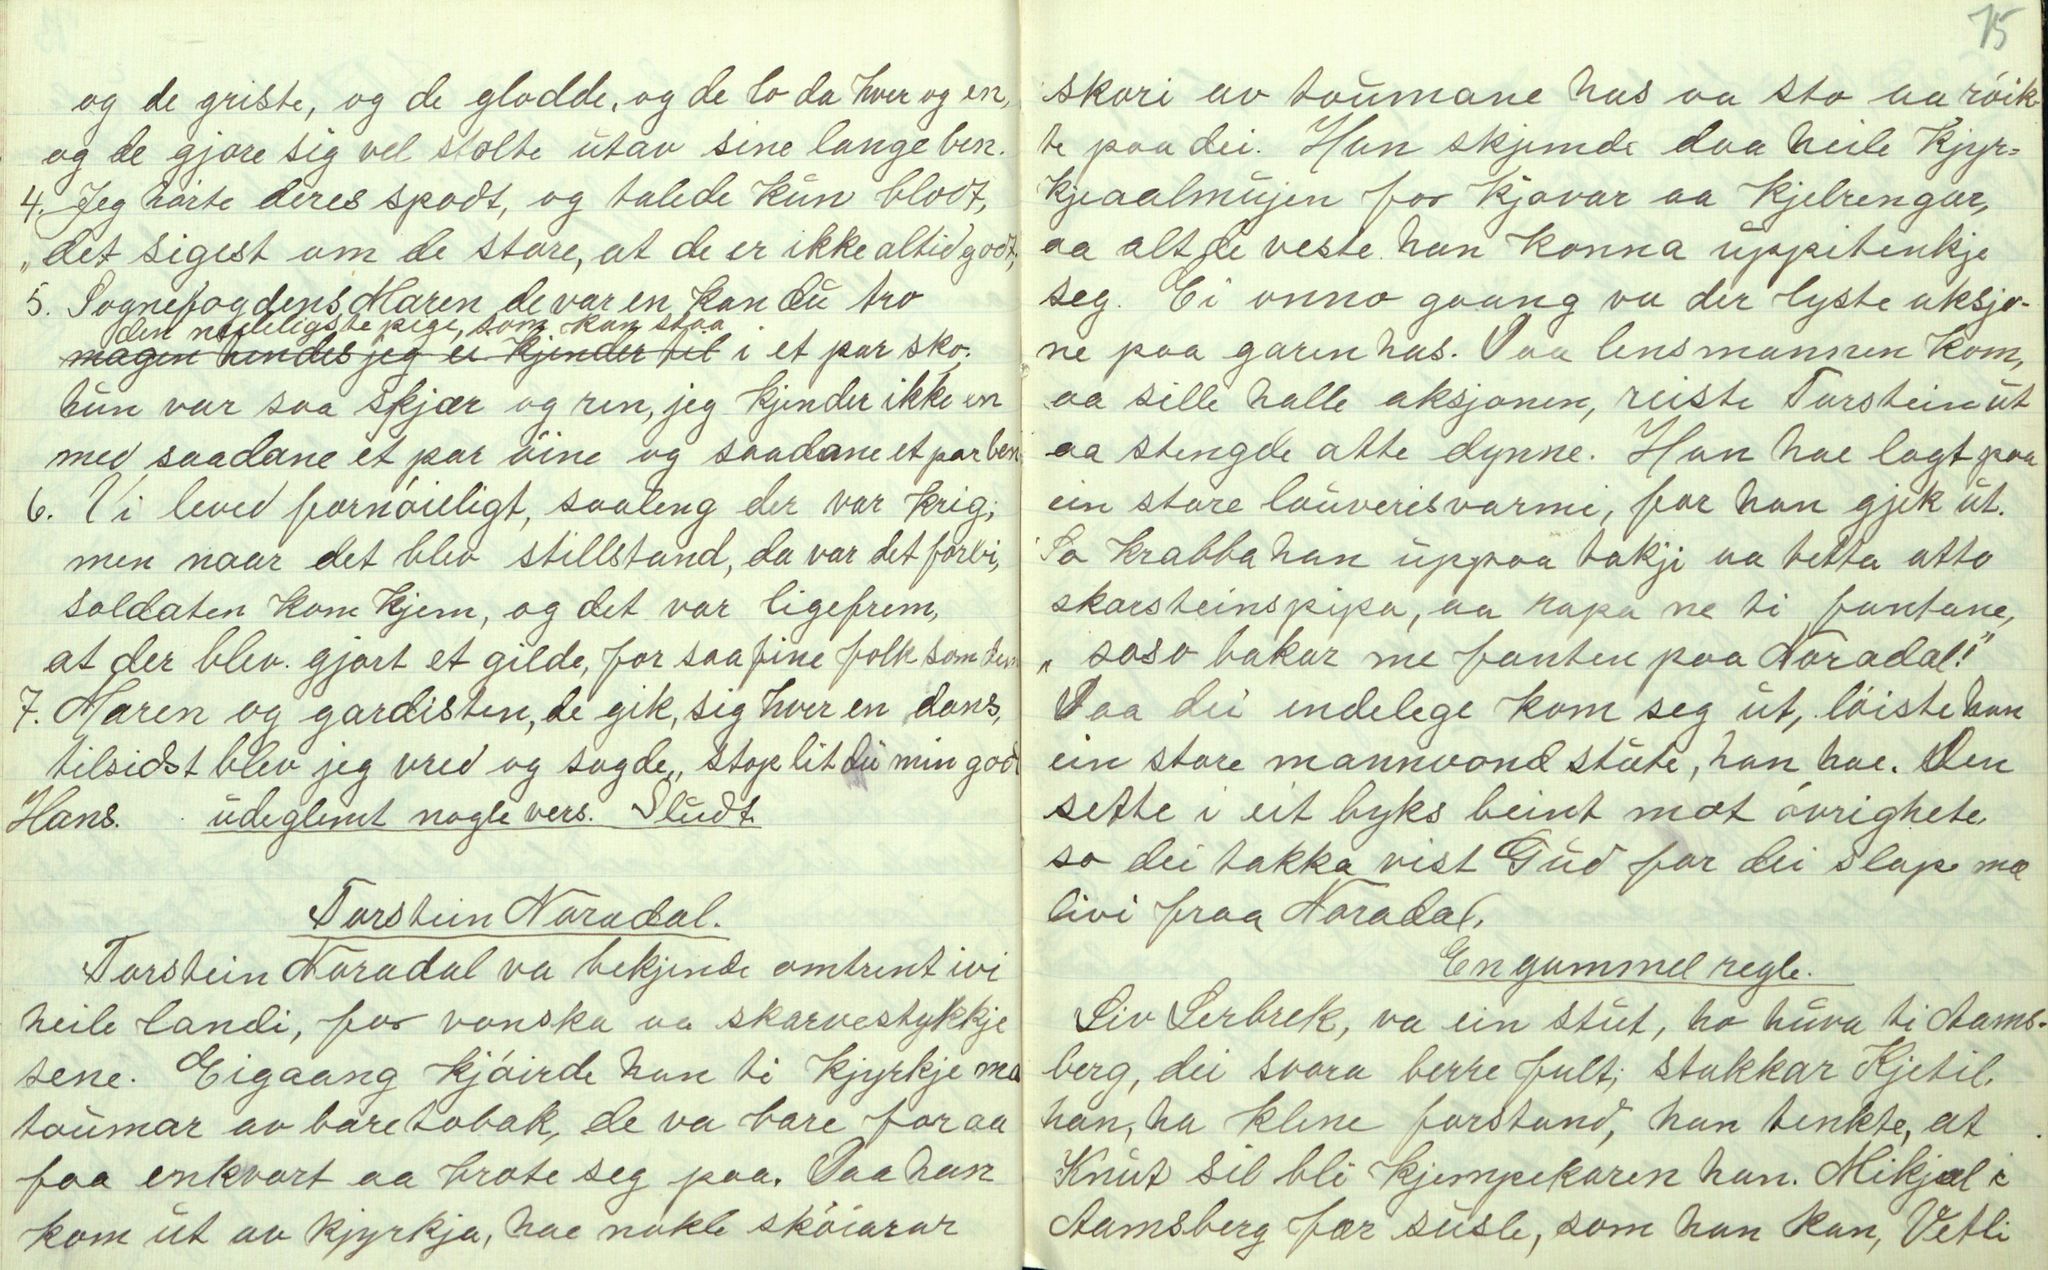 og de griste, og de glodde, og de lo da hver og en,
og de gjore sig vel stolte utav sine lange ben.
4. Jeg hørte deres spodt, og talede kun blodt,
„det sigest om de store, at de er ikke altid godt;
5. Sognefogdens Maren de var en kan du tro
den nydeligste pige, som kan staa
magen hendes jeg ei kjender til i et par sko.
hun var saa skjær og ren, jeg kjender ikke en
med saadane et par öine og saadane et par ben
6. Vi leved fornöieligt, saaleng der var krig;
men naar det blev stillstand, da var det forbi,
soldaten kom hjem, og det var ligefrem,
at der blev gjort et gilde, for saa fine folk som dem
7. Maren og gardisten, de gik, sig hver en dans,
tilsidst blev jeg vred og sagde „stop lit du min gode
Hans. udeglemt nogle vers. Sludt
Torstein Noradal.
Torstein Noradal va bekjende omtrent ivi
heile landi, for vonska aa skarvestykkje
sene. Eigaang kjöirde han ti kjyrkje mæ
toumar av bare tobak, de va bare for aa
faa enkvart aa brote seg paa. Daa han
kom ut av kjyrkja, hae nokle sköiarar
75
skori av toumane has aa sto aa röik-
te paa dei. Han skjemde daa heile kjyr-
kjeaalmujen for kjovar aa kjelrengar,
aa alt de veste han konna uppitenkje
seg. Ei onno gaang va der lyste aksjo-
ne paa garen has. Daa lensmannen kom,
aa sille halle aksjonen, reiste Torstein ut
aa stengde atte dynne. Han hae lagt paa
ein store louverisvarmi, for han gjek ut.
So krabba han uppaa takji aa tetta atto
skorsteinspipa, aa ropa ne ti fantane,
„soso bakar me fanten paa Noradal!"
Daa dei endelege kom seg ut, löiste han
ein store mannvond stute, han hae. Den
sette i eit byks beint mot övrighete.
so dei takka vist Gud for dei slap mæ
livi fraa Noradal.
En gammel regle.
Liv Lerbrek, va ein stut, ho huva ti Aams-
berg, dei svara berre fult; stakkar Kjetil
han, ha klene forstand, han tenkte, at
Knut sil bli kjempekaren han. Mikjæl i
Aamsberg fær susle, som han kan, Vetli